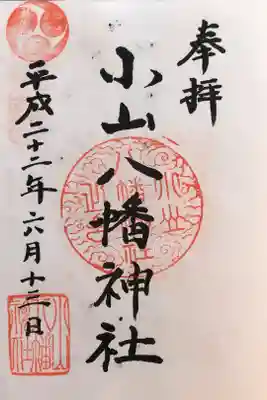 奉拝
小山八幡神社
平成二十二年六月十三日